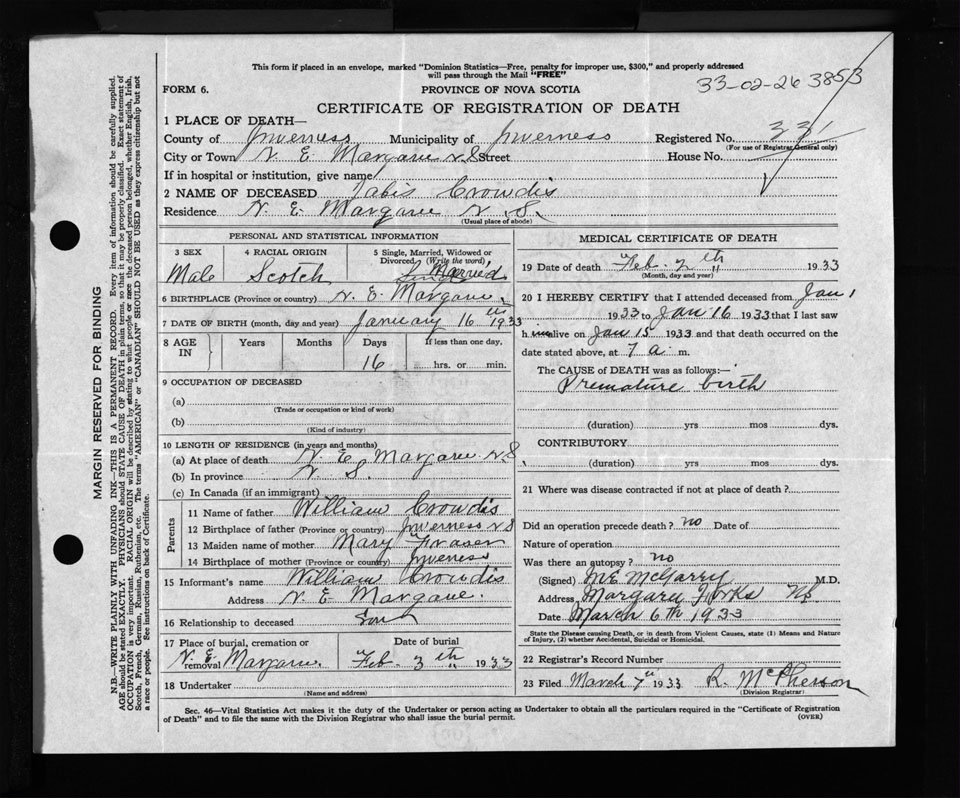 This form if placed in an envelope, marked "Dominion Statistics—Free, penalty for improper use, $300," and properly addressed
will pass through the Mail "FREE"
33-02-26 3853
FORM 6.
PROVINCE OF NOVA SCOTIA
CERTIFICATE OF REGISTRATION OF DEATH
1 PLACE OF DEATH—
County of Inverness Municipality of Inverness Registered No. 331
(For use of Registrar General only)
City or Town N. E. Margaree N.S Street House No.
If in hospital or institution, give name
2 NAME OF DECEASED Crowdis
Residence N. E. Margaree N.S.
(Usual place of abode)
PERSONAL AND STATISTICAL INFORMATION
3 SEX 4 RACIAL ORIGIN 5 Single, Married, Widowed or
Divorced (Write the word)
Male Scotch Single Married
6 BIRTHPLACE (Province or country) N. E. Margaree
7 DATE OF BIRTH (month, day and year) January 16th 1933
8 AGE IN Years Months Days If less than one day,
16 hrs. or min.
9 OCCUPATION OF DECEASED
(a)
(Trade or occupation or kind of work)
(b)
(Kind of industry)
10 LENGTH OF RESIDENCE (in years and months)
(a) At place of death N. E. Margaree N.S
(b) In province N. S.
(c) In Canada (if an immigrant)
Parents
11 Name of father William Crowdis
12 Birthplace of father (Province or country) Inverness N S
13 Maiden name of mother Mary Fraser
14 Birthplace of mother (Province or country) Inverness
15 Informant's name William Crowdis
Address N. E. Margaree.
16 Relationship to deceased Son
17 Place of burial, cremation or removal Date of burial
N. E. Margaree. Feb. 3th 1933
18 Undertaker
(Name and address)
MEDICAL CERTIFICATE OF DEATH
19 Date of death Feb. 2th 1933
(Month, day and year)
20 I HEREBY CERTIFY that I attended deceased from Jan 1
1933 to Jan 16 1933 that I last saw
h im alive on Jan 15 1933 and that death occurred on the
date stated above, at 7 a m.
The CAUSE of DEATH was as follows:—
Premature birth
(duration) yrs mos dys.
CONTRIBUTORY
(duration) yrs. mos. dys.
21 Where was disease contracted if not at place of death?
Did an operation precede death? no Date of
Nature of operation
Was there an autopsy? no
(Signed) M.E. McGarry M.D.
Address Margaree Forks NS.
Date March 6th 1933
State the Disease causing Death, or in death from Violent Causes, state (1) Means and Nature
of Injury, (2) whether Accidental, Suicidal or Homicidal.
22 Registrar's Record Number
23 Filed March 7th 1933 R. McPherson
(Division Registrar)
Sec. 46—Vital Statistics Act makes it the duty of the Undertaker or person acting as Undertaker to obtain all the particulars required in the "Certificate of Registration
of Death" and to file the same with the Division Registrar who shall issue the burial permit.
(OVER)
MARGIN RESERVED FOR BINDING
N.B.—WRITE PLAINLY WITH UNFADING INK—THIS IS A PERMANENT RECORD. Every item of information should be carefully supplied.
AGE should be stated EXACTLY. PHYSICIANS should STATE CAUSE OF DEATH in plain terms, so that it may be properly classified. Exact statement of
OCCUPATION is very important. RACIAL ORIGIN will be described by stating to what people or race the deceased person belonged, whether English, Irish,
Scotch, French, German, Russian, Ruthenian, etc. The terms "AMERICAN" or "CANADIAN" SHOULD NOT BE USED as they express citizenship but not
a race or people. See instructions on back of Certificate.